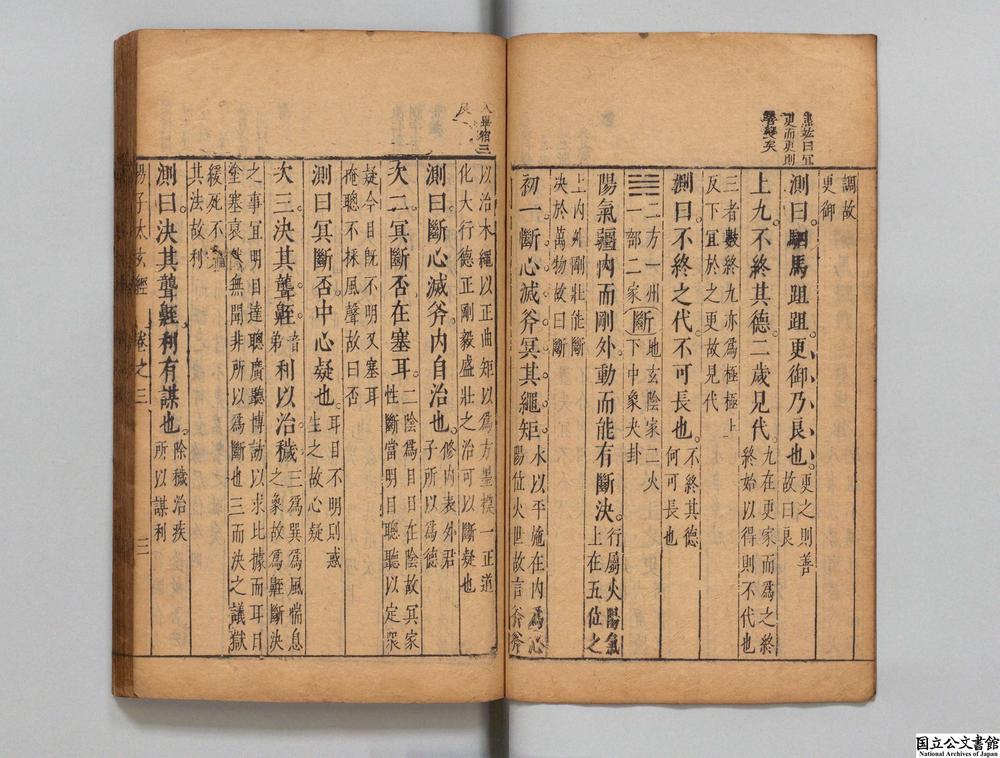 調故
更御
測曰駟馬跙跙更御乃良也更之則善故曰良
上九不終其德二歲見代九在更家而爲之終終始以得則不代也
三者數終九亦爲極極上
反下宜於之更故見代
測曰不終之代不可長也不終其德何可長也
二方一州斷地玄陰家二火
一部二家下中象夬卦
陽氣彊內而剛外動而能有斷決行屬火陽氣上在五位之
上內外剛壯能斷
決於萬物故曰斷
初一斷心滅斧冥其繩矩水以平施在內爲心陽位火世故言斧斧
以治木繩以正曲矩以爲方墨摸一正道
化大行德正剛毅盛壯之治可以斷疑也
測曰斷心滅斧內自治也修內表外君子所以爲德
次二冥斷否在塞耳二陰爲目目在陰故冥家性斷當明目聰聽以定衆
疑今目旣不明又塞耳
掩聰不採風聲故曰否
測曰冥斷否中心疑也耳目不明則惑生之故心疑
次三決其聾䶏音弟利以治穢三爲巽爲風喘息之象故爲䶏斷決
之事宜明目達聰廣聽博訪以求比據而耳目
塗塞裒然無聞非所以爲斷也三而決之議獄
緩死不
其法故利
測曰決其聾䶏利有謀也除穢治疾所以謀利
揚子太玄經
卷之三
三
更而更則
入畢宿三
国立公文書館
National Archives of Japan